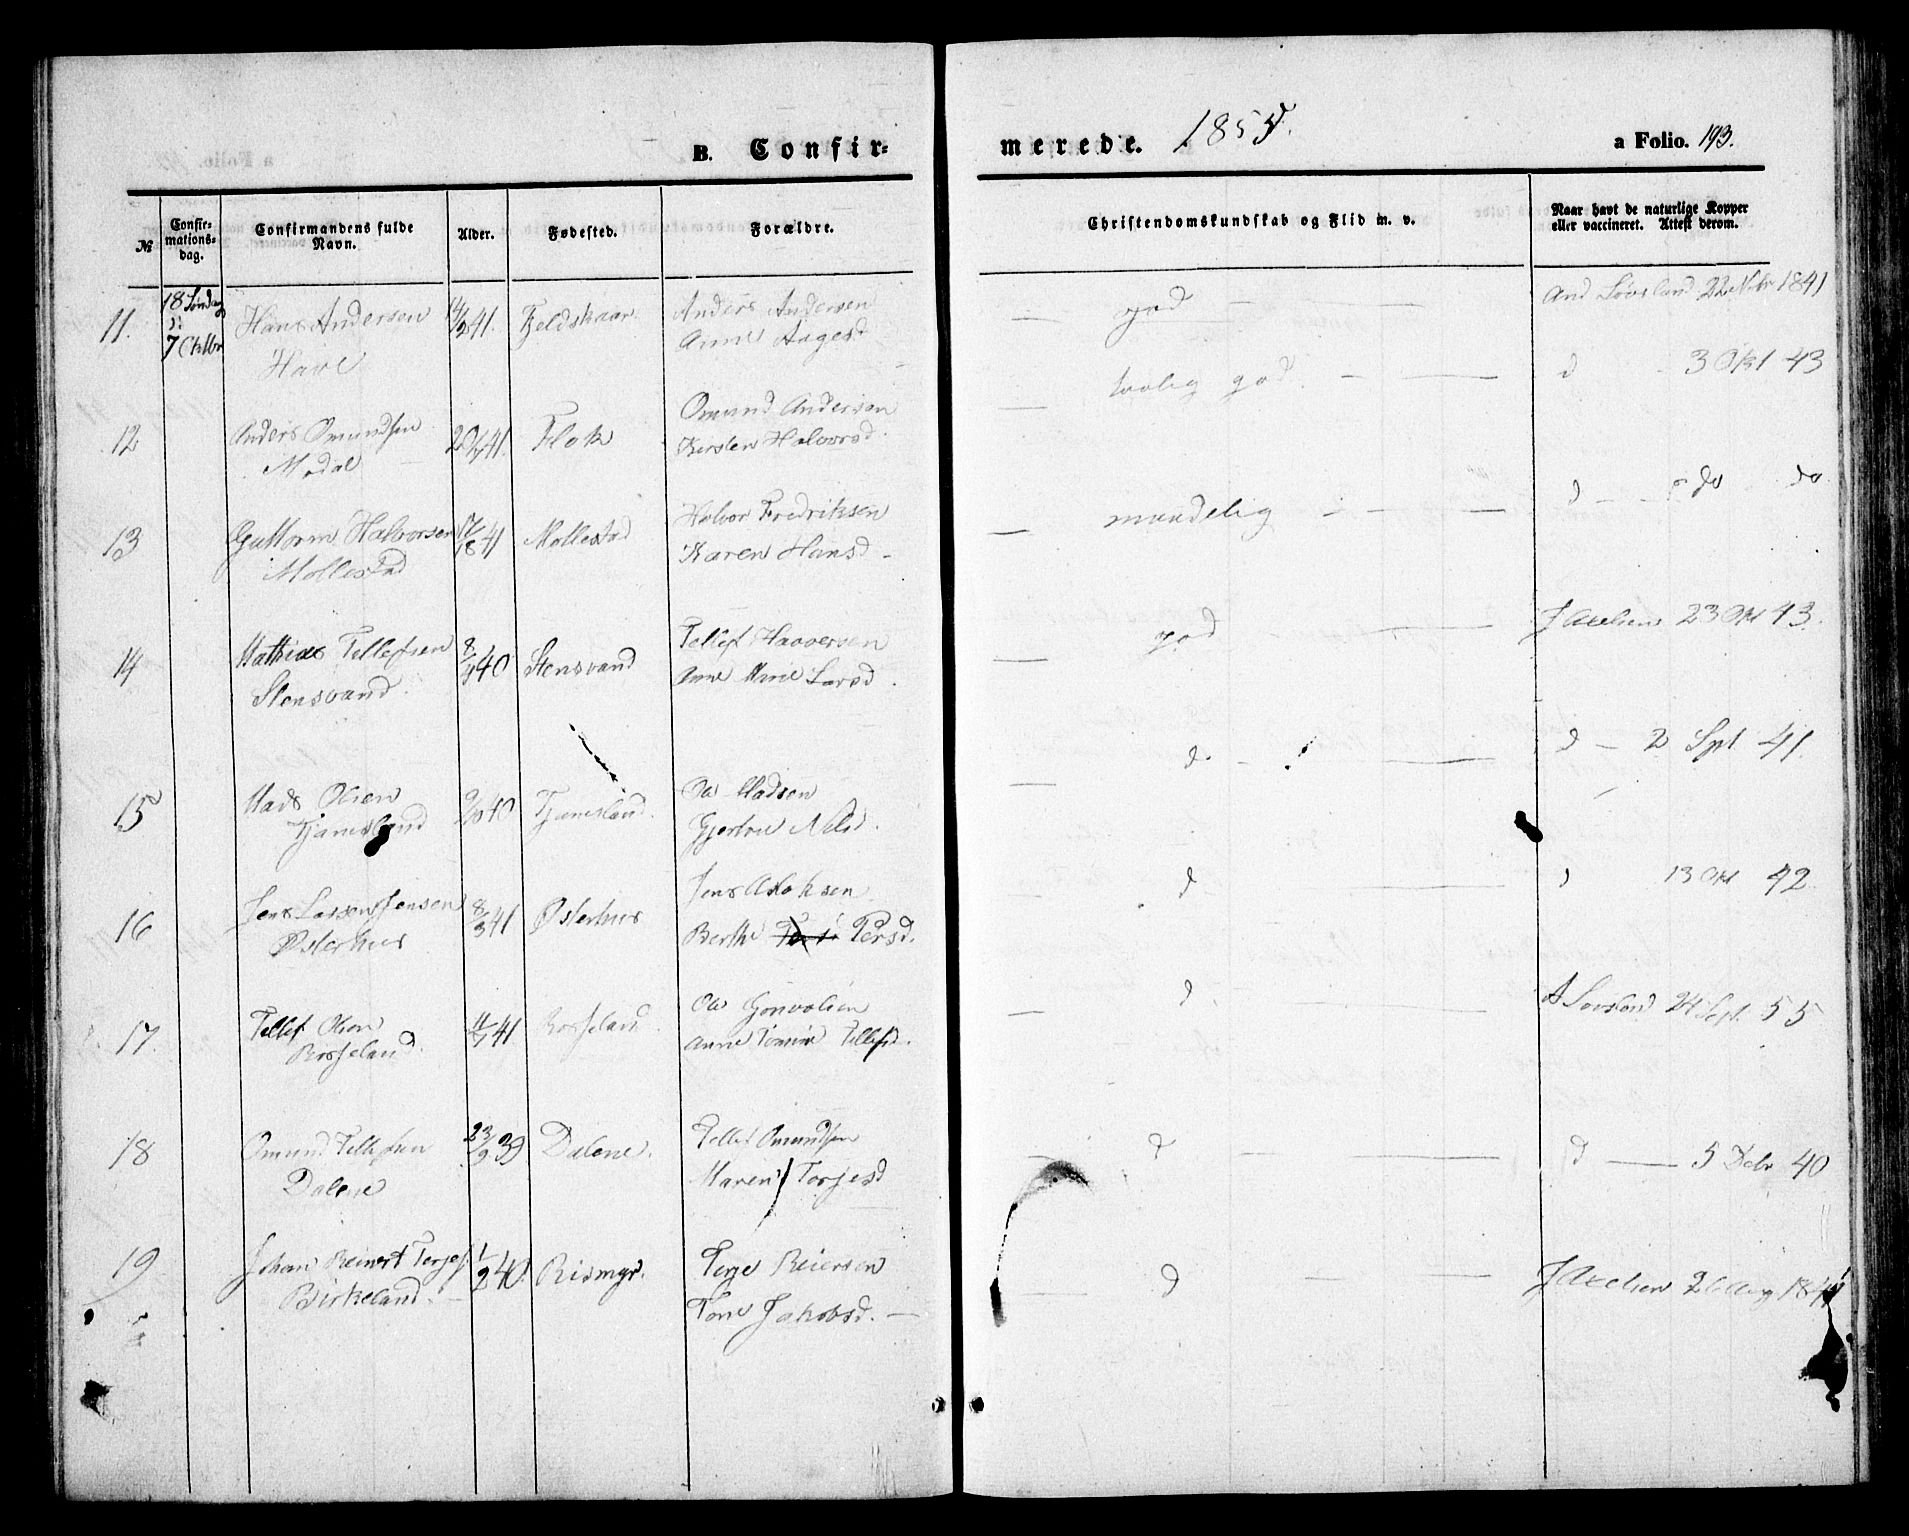 B. Confir-
merede. 1855.
a Folio. 193.
№
Confir-
mations-
dag.
Confirmandens fulde
Navn.
Alder.
Fødested.
Forældre.
Christendomskundskab og Flid m. v.
Naar havt de naturlige Kopper
eller vaccineret. Attest derom.
11. 18 Søndag 7 Oktbr
Hans Andersen
14/2 41. Fjeldskaar
Anders Andersen
Anne Aagesd
god
And Løvsland 22 Nvbr 1841
12
Anders Omundsen
Modal
41. Flok
Omund Andersen
Kirsten Halvorsd.
god.
d 3 Okt 43
13
Guttorm Halvorsen
Mollestad
41 Mollestad
Halvor Fredriksen
Karen Hansd -
maadelig
d - do do
14
Mathias Tellefsen
Stensvand
40 Stensvand
Tellef Haaversen
Anne Marie Larsd.
god
J Axelsen 23 Okt 43.
15
Mads Olsen
Tjamsland
40 Tjamsland.
Ole Madsen
Nilsd.
d -
d - 2 Spt 41.
16
Jens Larsen Jensen
Østerhus
8/3 41 Østerhus
Jens Aslaksen
Berthe Persd.
d
d 13 Okt 42
17.
Tellef Olsen
Rosseland.
41 Rosseland.
Ole Gonvalsen
Anne Tomine Tellefsd.
d
A Løvsland 24 Sept. 55
18
Omund Tellefsen
Dalen
23/9 39 Dalene.
Tellef Omundsen
Maren Torjesd
d
d — 5 Debr 40
19
Johan Reinert Terjes.
Birkeland. -
1/2 40. Rismyr.
Terje Reiersen
Tone Jakobsd. -
d
J Axelsen